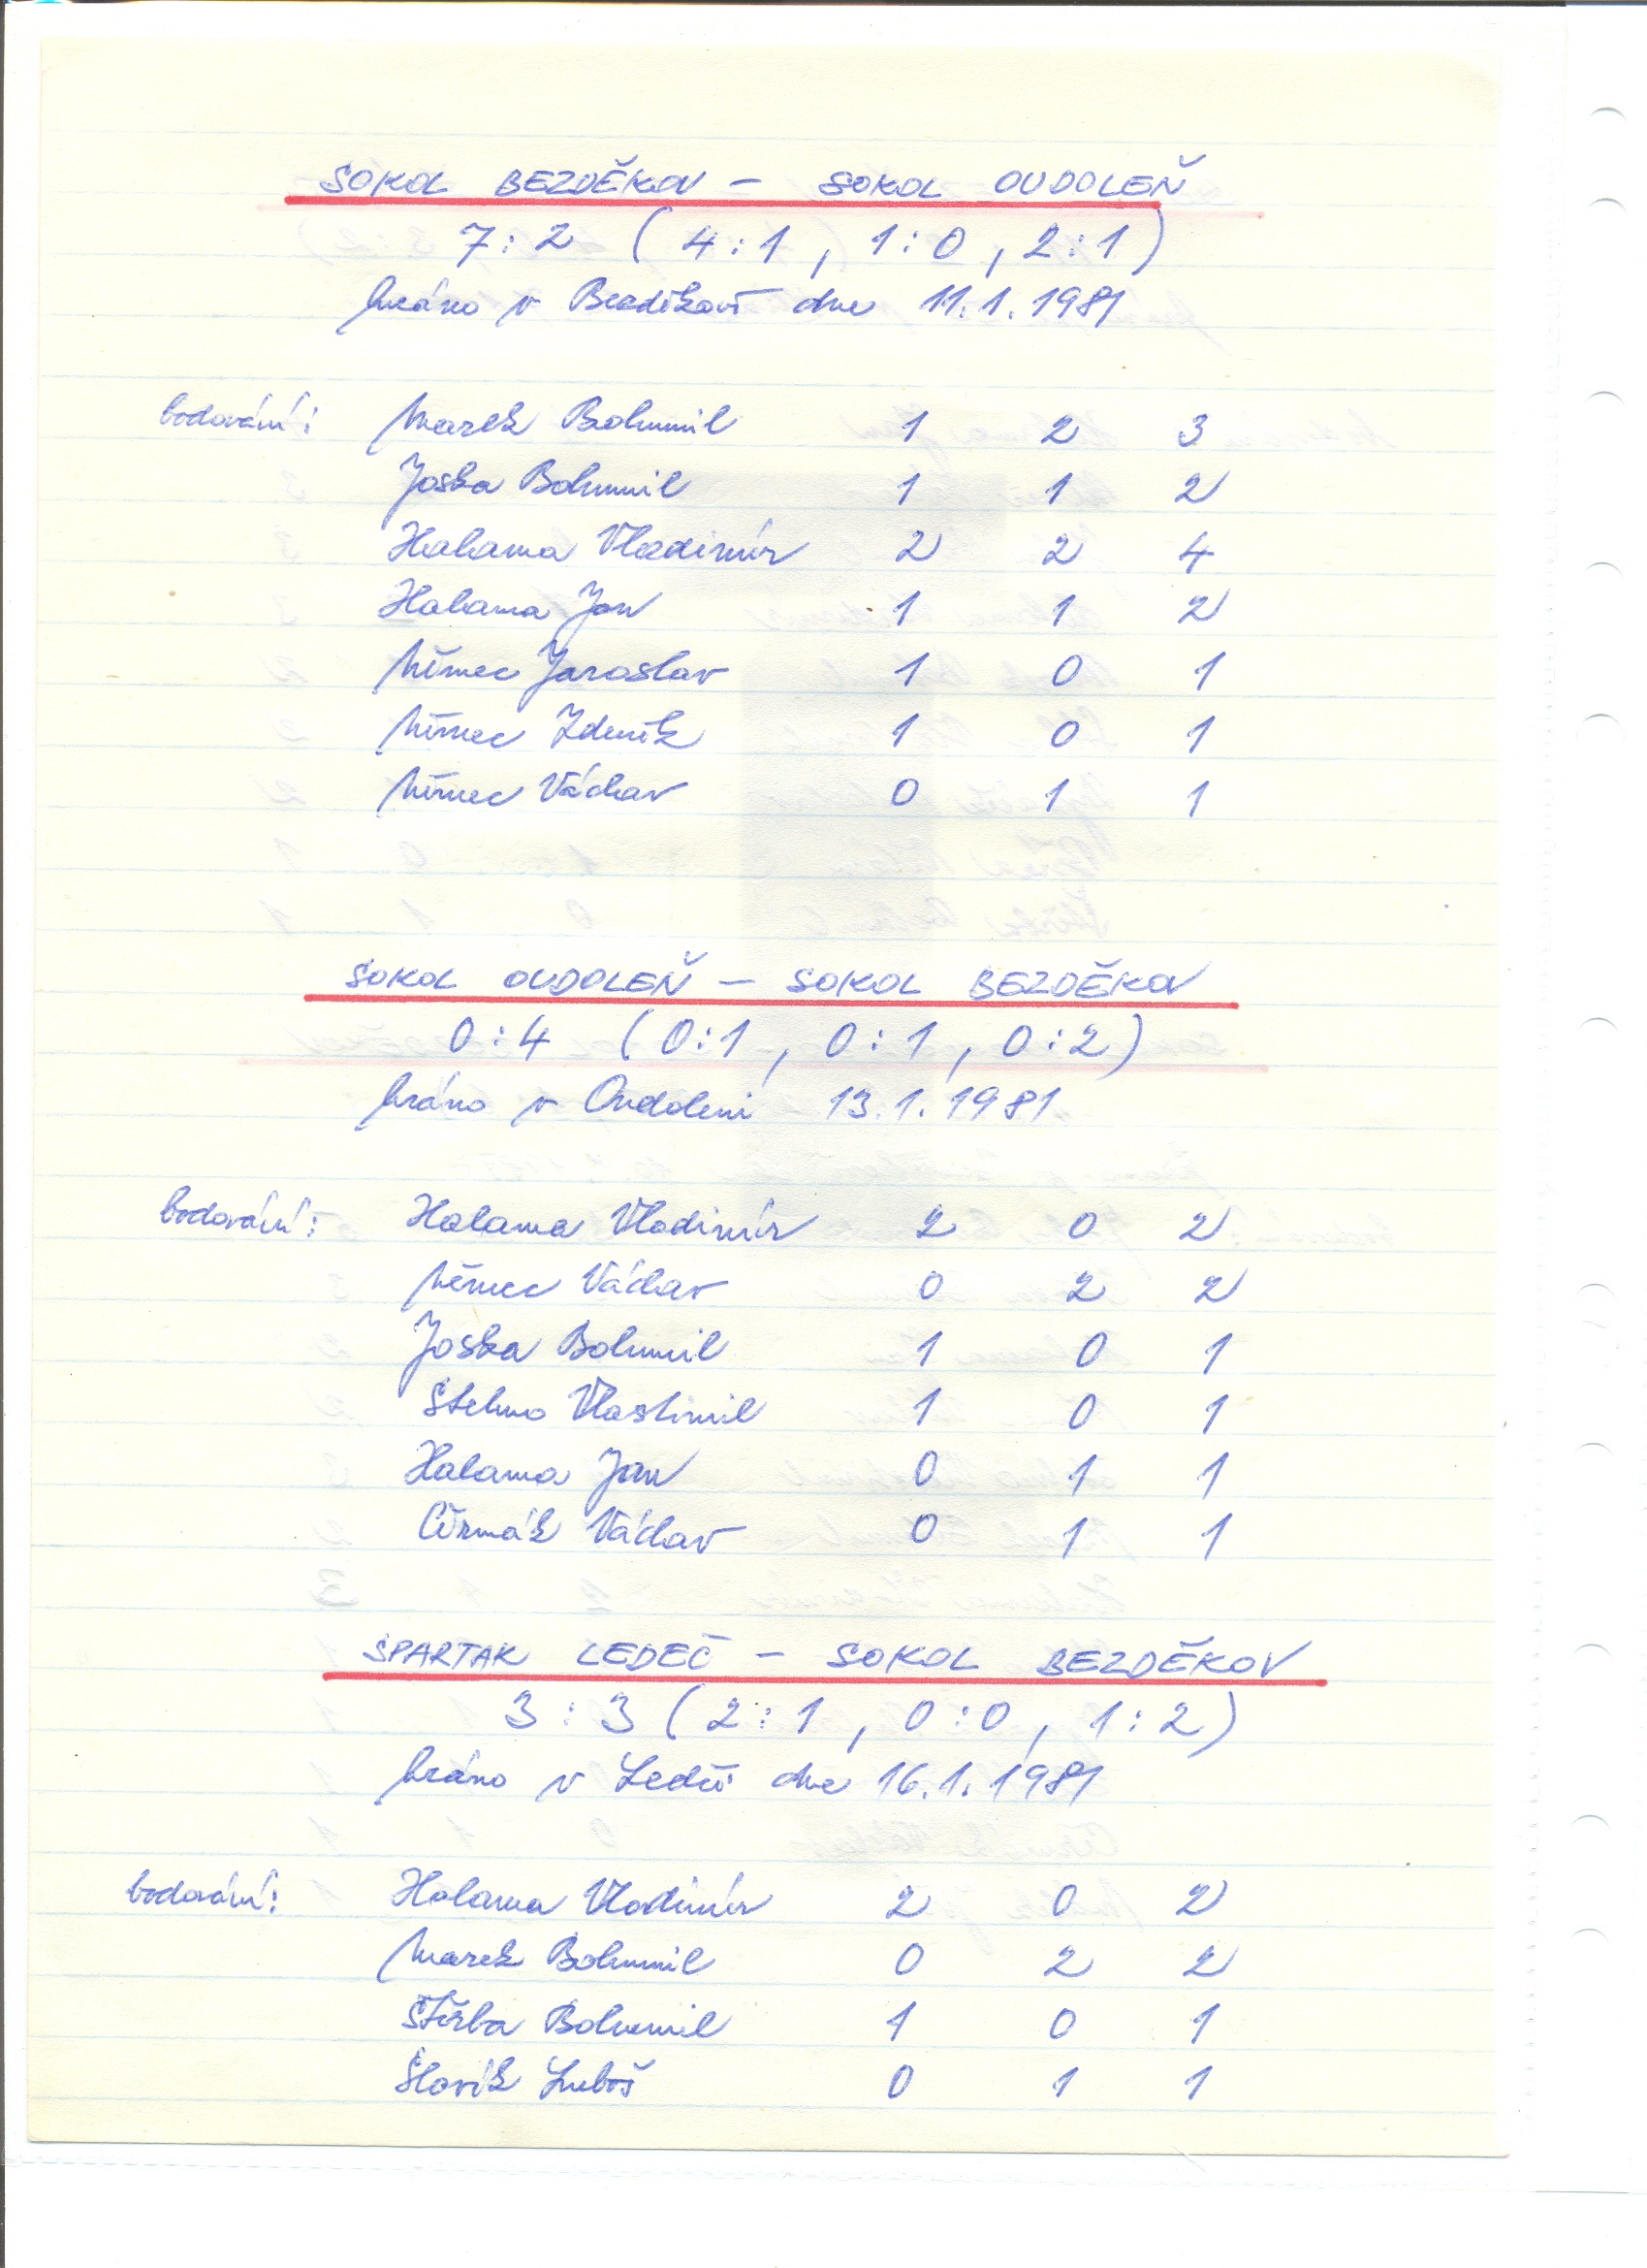 SOKOL BEZDĚKOV – SOKOL OUDOLEŇ
7:2 ( 4:1 , 1:0 , 2:1 )
hráno v Bezděkově dne 11.1.1981
bodování: Marek Bohumil 1 2 3
Joska Bohumil 1 1 2
Halama Vladimír 2 2 4
Halama Jan 1 1 2
Němec Jaroslav 1 0 1
Němec Zdeněk 1 0 1
Němec Václav 0 1 1
SOKOL OUDOLEŇ – SOKOL BEZDĚKOV
0:4 ( 0:1 , 0:1 , 0:2 )
hráno v Oudoleni 13.1.1981
bodování: Halama Vladimír 2 0 2
Němec Václav 0 2 2
Joska Bohumil 1 0 1
Stehno Vlastimil 1 0 1
Halama Jan 0 1 1
Čermák Václav 0 1 1
SPARTAK LEDEČ – SOKOL BEZDĚKOV
3:3 ( 2:1 , 0:0 , 1:2 )
hráno v Ledči dne 16.1.1981
bodování: Halama Vladimír 2 0 2
Marek Bohumil 0 2 2
Štěrba Bohumil 1 0 1
Slavík Luboš 0 1 1